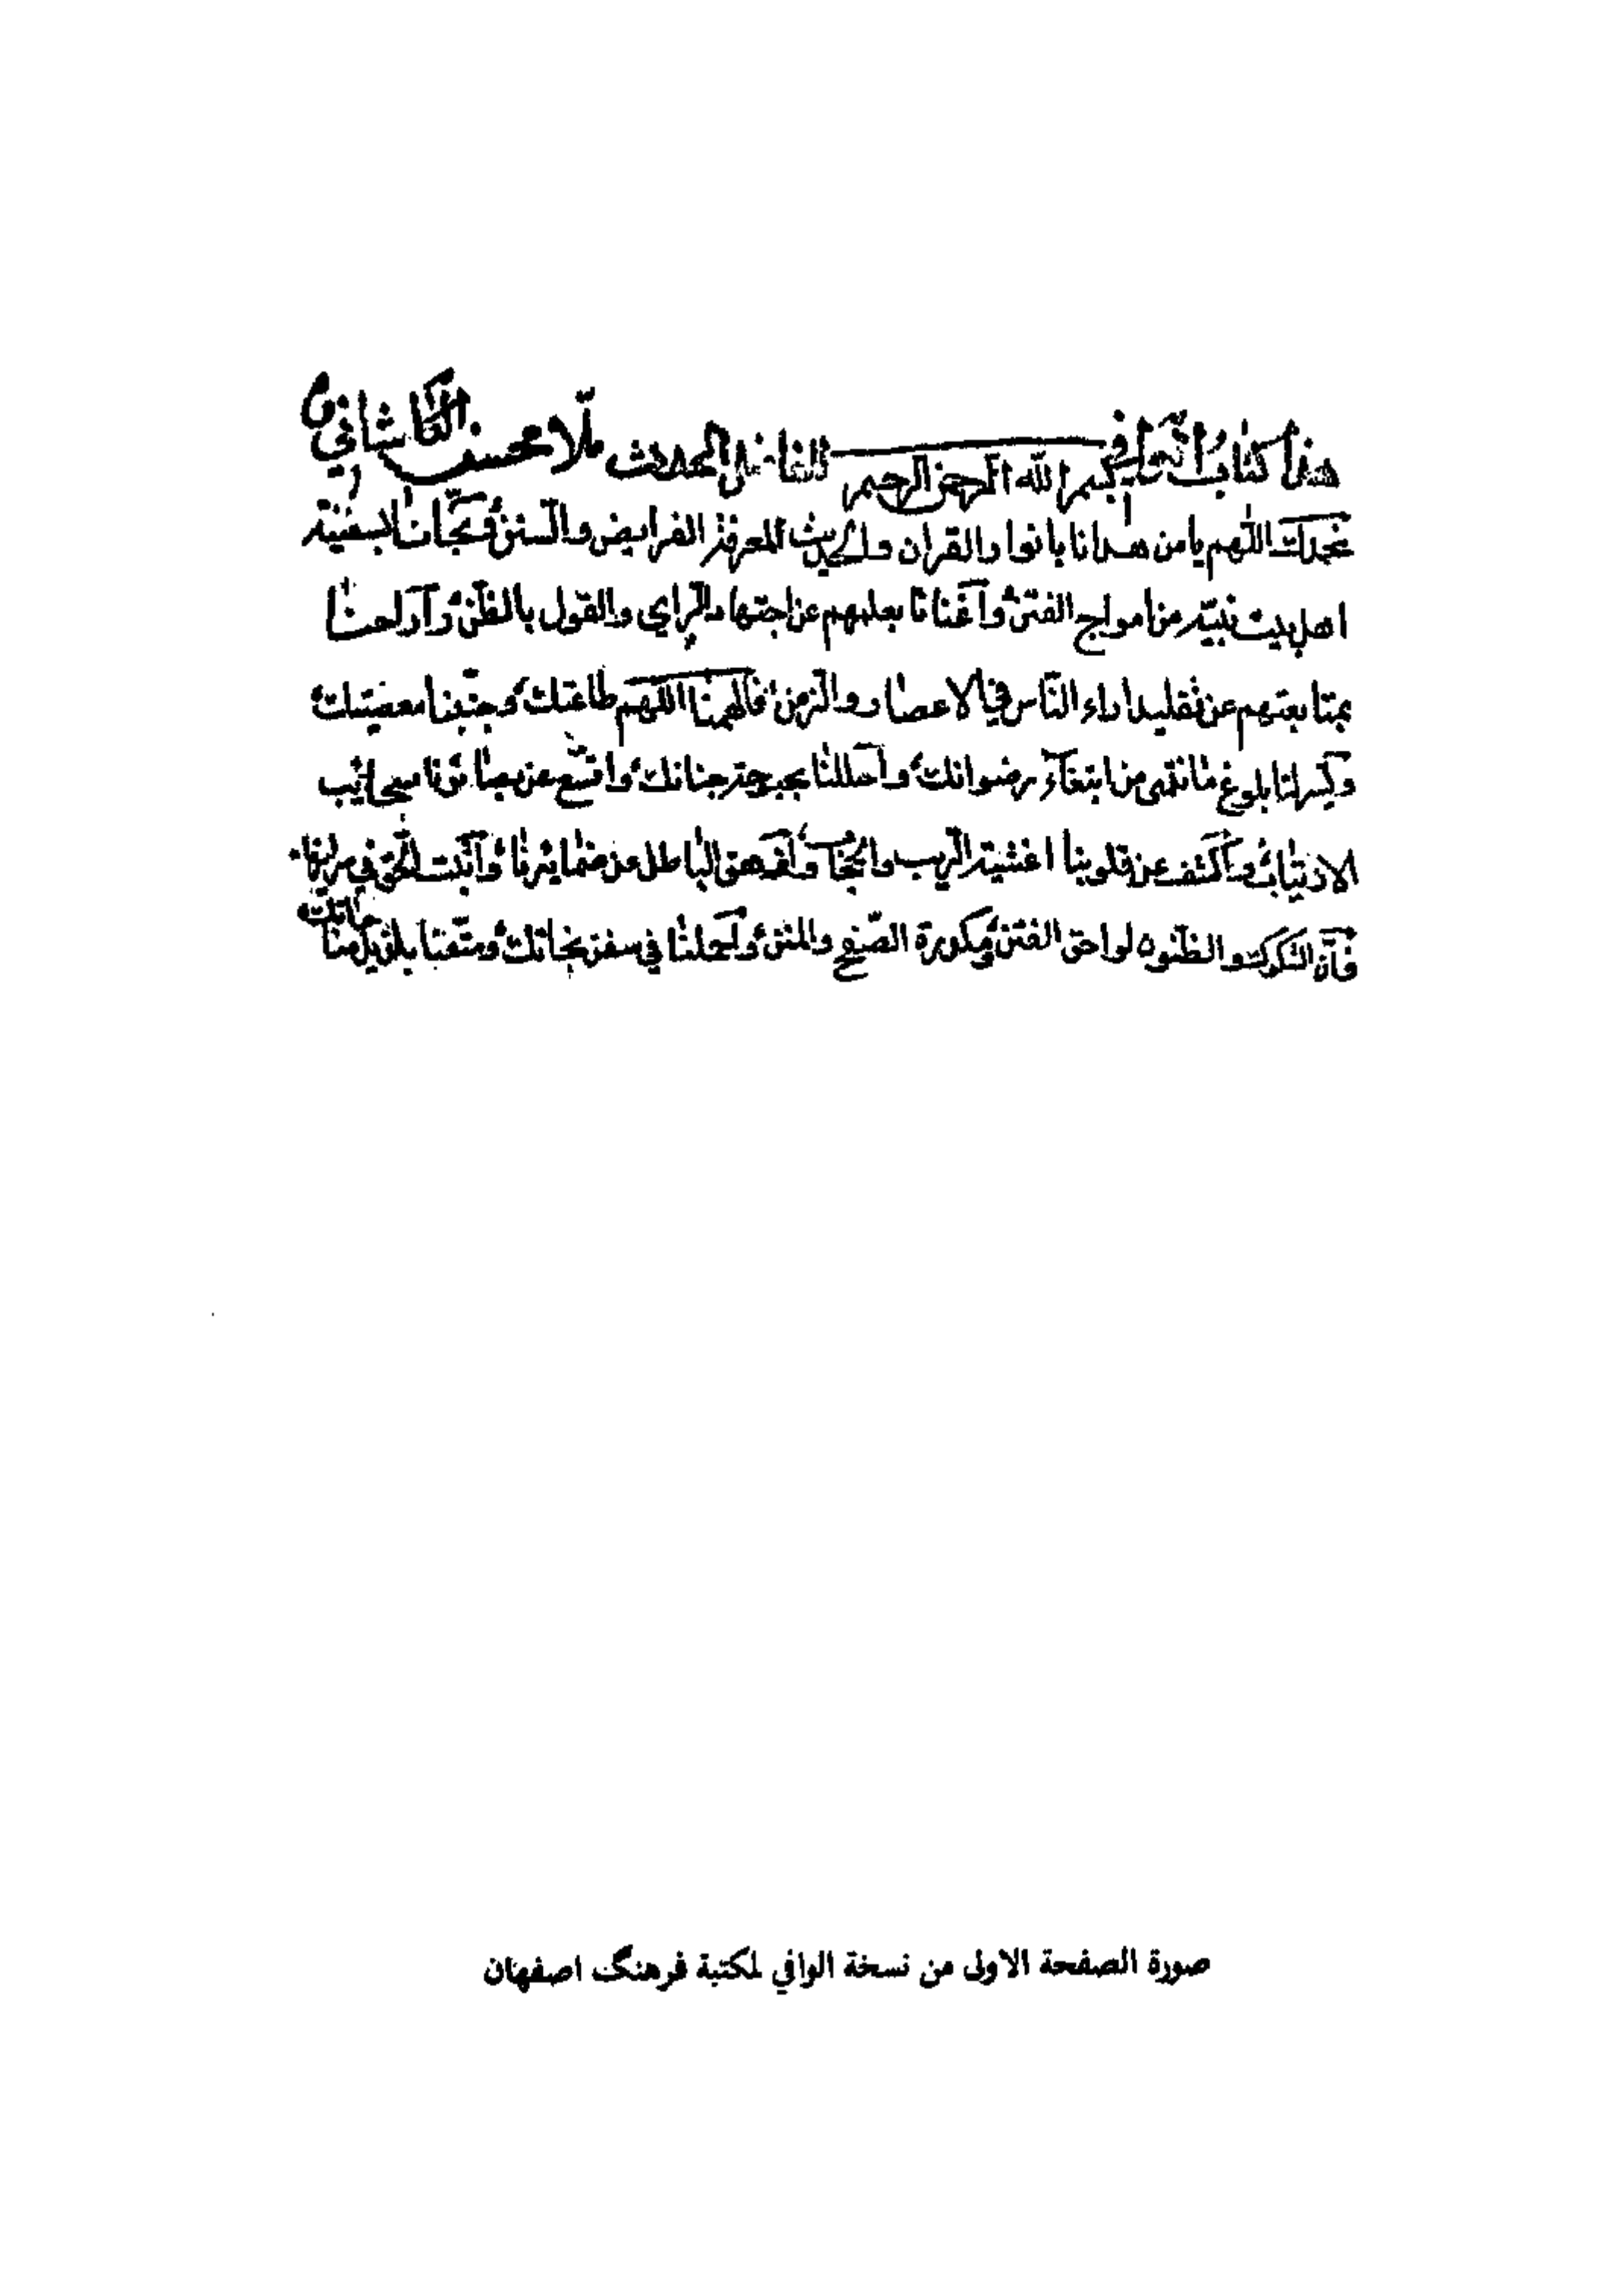 هذا كتاب الوافي للفاضل المحدث ملّا محسن الكاشاني
بسم الله الرحمن الرحيم
نحمدك اللّهم يا من هدانا بانوار القران والحديث لمعرفة الفرايض والسّنن ونجّانا بسفينة
اهل بيت نبيّه من امواج الفتن وآغنانا بعلمهم عن اجتهاد الرّاي والقول بالظّنّ وآراحنا
بمتابعتهم عن تقليد اراء النّاس في الاعصار والزمن فالهمنا اللّهم طاعتك وجنّبنا معصيتك
ويسّر لنا بلوغ ما نتمنى من ابتغآء رضوانك واحللنا بحبوحة جنانك واقشع عن بصائرنا سحائب
الارتياب واكشف عن قلوبنا اغشية الرّيب والحجاب وازهق الباطل عن ضمايرنا واثبت الحق في سرايرنا
فانّ الشكوك والظّنون لواحق الفتن ومكدرة الصّفح والمنن واحملنا في سفن نجاتك ومتّعنا بلذيذ مناجاتك
صورة الصفحة الاولى من نسخة الوافي لمكتبة فرهنگ اصفهان